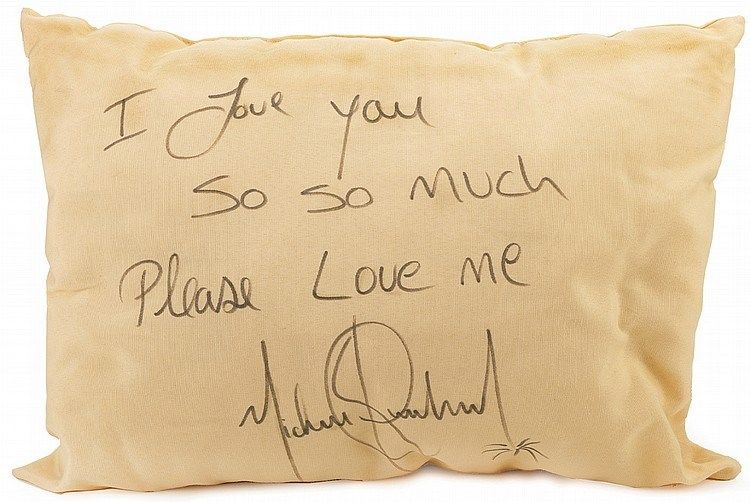 I Love you
So So much
Please Love me
Michael Jackson